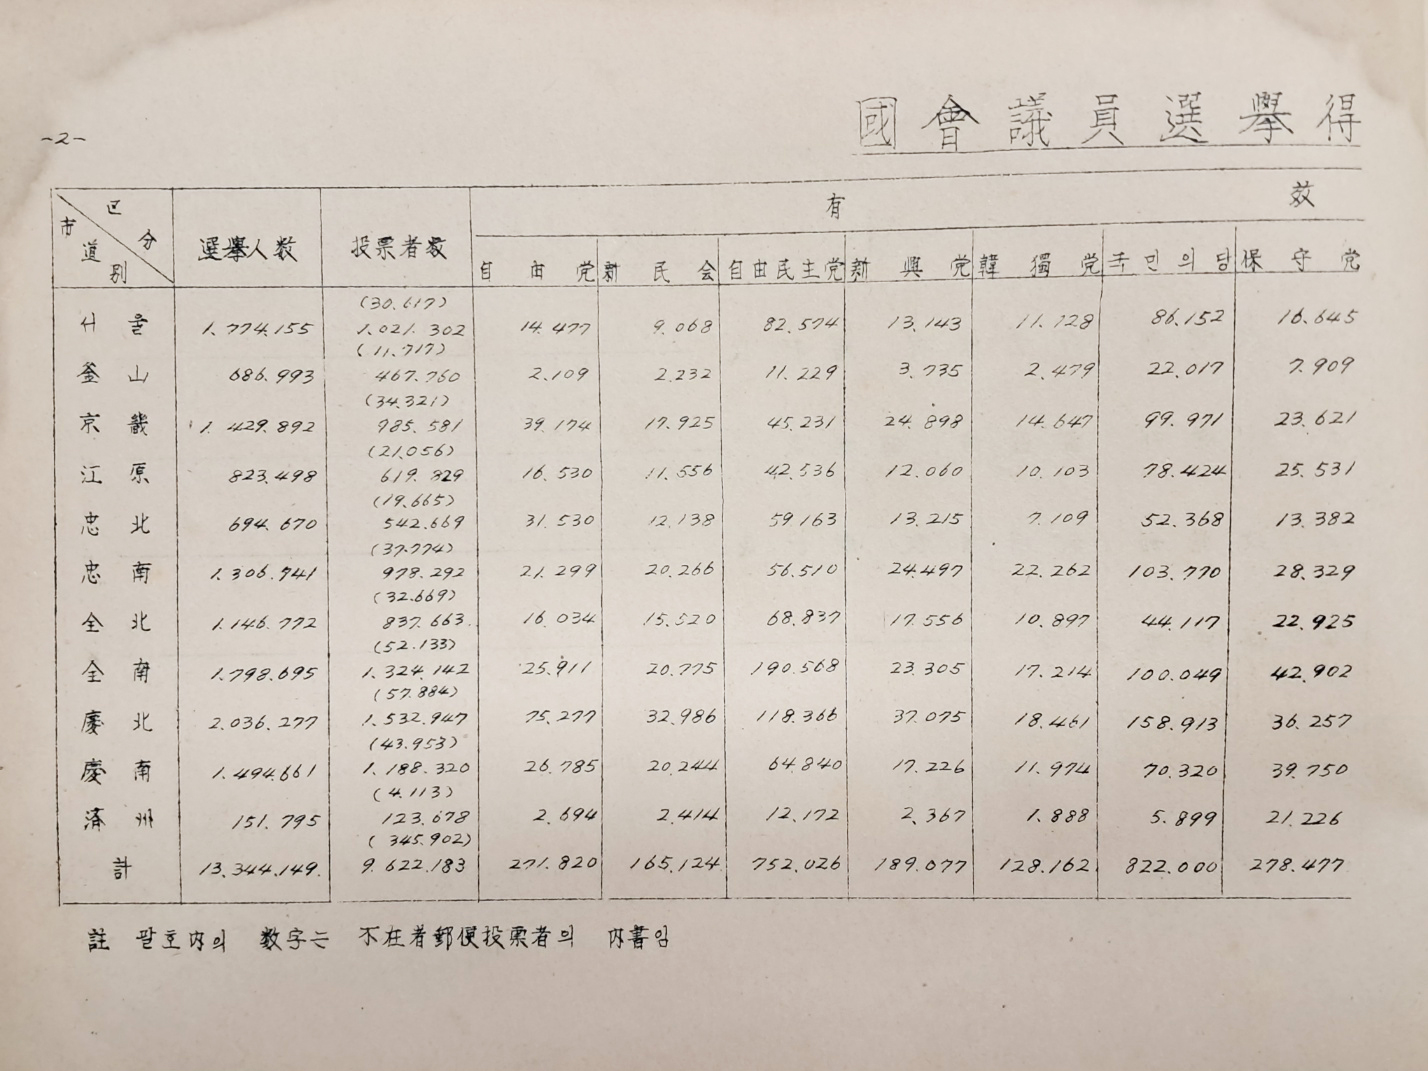 國會議員選擧得
-2-
区分 市道別 選擧人数 投票者数 有効
自由党 新民会 自由民主党 新興党 韓獨党 국민의당 保守党
(30.617)
서울 1.774.155 1.021.302 14.477 9.068 82.574 13.143 11.128 86.152 16.645
(11.717)
釜山 686.993 467.760 2.109 2.232 11.229 3.735 2.479 22.017 7.909
(34.321)
京畿 1.429.892 985.581 39.174 17.925 45.231 24.898 14.647 99.971 23.621
(21.056)
江原 823.498 619.829 16.530 11.556 42.536 12.060 10.103 78.424 25.531
(19.665)
忠北 694.670 542.669 31.530 12.138 59.163 13.215 7.109 52.368 13.382
(37.774)
忠南 1.306.741 978.292 21.299 20.266 56.510 24.497 22.262 103.770 28.329
(32.669)
全北 1.146.772 837.663 16.034 15.520 68.837 17.556 10.897 44.117 22.925
(52.133)
全南 1.798.695 1.324.142 25.911 20.775 190.568 23.305 17.214 100.049 42.902
(57.884)
慶北 2.036.277 1.532.947 75.277 32.986 118.366 37.075 18.461 158.913 36.257
(43.953)
慶南 1.494.661 1.188.320 26.785 20.244 64.840 17.226 11.974 70.320 39.750
(4.113)
済州 151.795 123.678 2.694 2.414 12.172 2.367 1.888 5.899 21.226
(345.902)
計 13.344.149. 9.622.183 271.820 165.124 752.026 189.077 128.162 822.000 278.477
註 괄호内의 数字는 不在者郵便投票者의 内書임